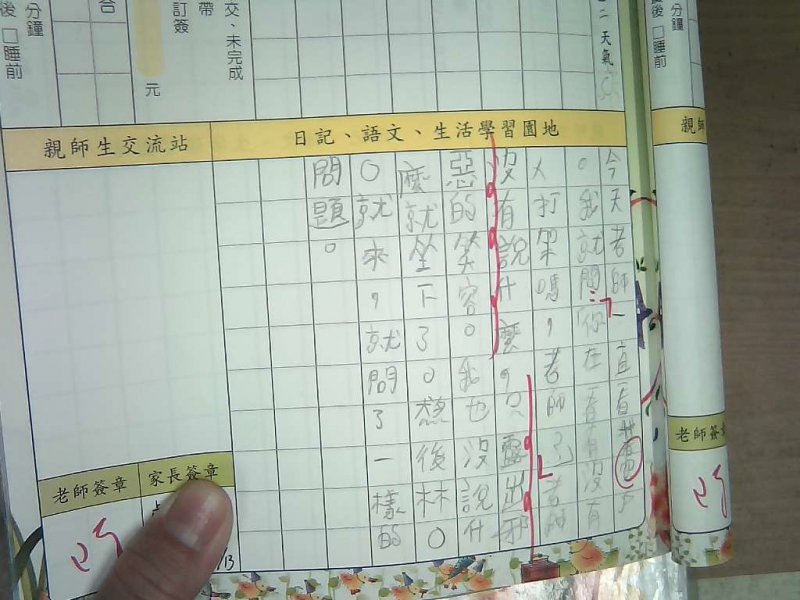 分鐘
後 □睡前
交、未完成
帶
訂簽
元
合
二 天氣
後 □睡前
分鐘
親師生交流站
日記、語文、生活學習園地
親師
今天老師一直
。我就問:「你在看有沒有
人打架嗎,老師
沒有說什麼,只露出邪
惡的笑容。我也沒說什
麼就坐下了。然後林○
○就來,就問了一樣的
問題。
老師簽章
家長簽章
老師簽章